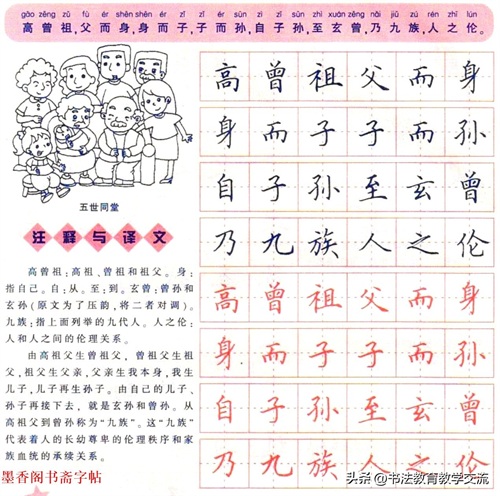 gāo zēng zǔ fù ér shēn shēn ér zǐ zǐ ér sūn zì zǐ sūn zhì xuán zēng nǎi jiǔ zú rén zhī lún
高曾祖,父而身,身而子,子而孙,自子孙,至玄曾,乃九族,人之伦。
五世同堂
注释与译文
高曾祖:高祖、曾祖和祖父。身:
指自己。自:从。至:到。玄曾:曾孙和
玄孙(原文为了压韵,将二者对调)。
九族:指上面列举的九代人。人之伦:
人和人之间的伦理关系。
由高祖父生曾祖父,曾祖父生祖
父,祖父生父亲,父亲生我本身,我生
儿子,儿子再生孙子。由自己的儿子、
孙子再接下去,就是玄孙和曾孙。从
高祖父到曾孙称为“九族”。这“九族”
代表着人的长幼尊卑的伦理秩序和家
族血统的承续关系。
高曾祖父而身
身而子子而孙
自子孙至玄曾
乃九族人之伦
高曾祖父而身
身而子子而孙
自子孙至玄曾
乃九族人之伦
墨香阁书斋字帖
头条 @书法教育教学交流